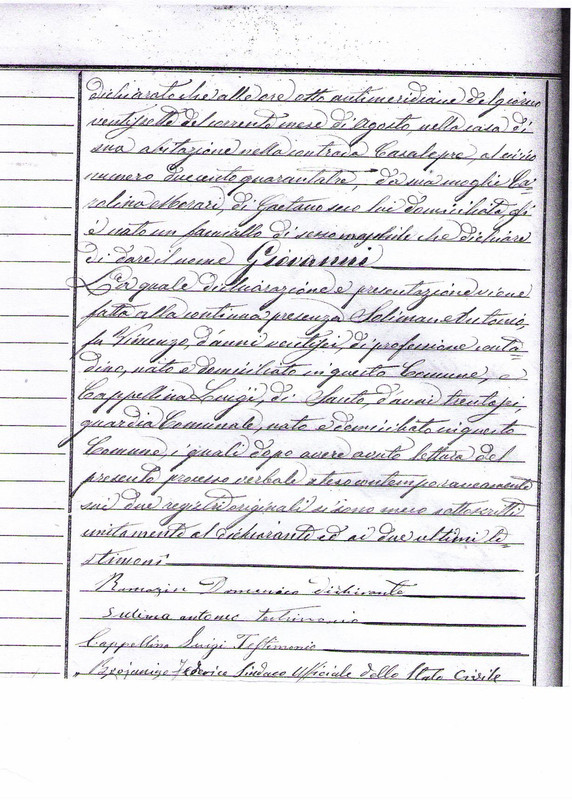 dichiarato che alle ore otto antimeridiane del giorno
ventisette del corrente mese di Agosto nella casa di
sua abitazione nella contrada Casalepre, al civico
numero duecento quarantatre, da sua moglie Ca-
rolina Morari, di Gaetano seco lui domiciliata, gli
è nato un fanciullo di sesso maschile che dichiara
di dare il nome Giovanni
La quale dichiarazione e presentazione viene
fatta alla continua presenza Solimano Antonio,
fu Vincenzo, d'anni ventisei, di professione conta-
dino, nato e domiciliato in questo Comune, e
Cappellino Luigi, di Santo, d'anni trentasei,
guardia Comunale, nato e domiciliato in questo
Comune, i quali dopo avere avuto lettura del
presente processo verbale steso contemporaneamente
sui due registri originali si sono meco sottoscritti
unitamente al dichiarante ed ai due ultimi te-
stimoni
Domenico dichirante
antonio testimonio
Cappellino Luigi Testimonio
Federico Sindaco Ufficiale dello Stato Civile